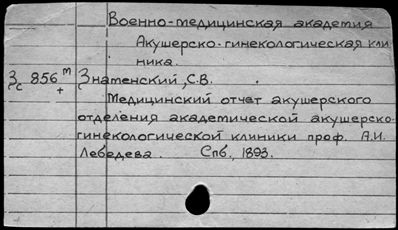 Военно-медицинская академия
Акушерско-гинекологическая кли
ника.
З 856 т Знаменский, С.В.
с +
Медицинский отчет акушерского
отделения академической акушерско-
гинекологической клиники проф. А.И.
Лебедева. Спб, 1893.